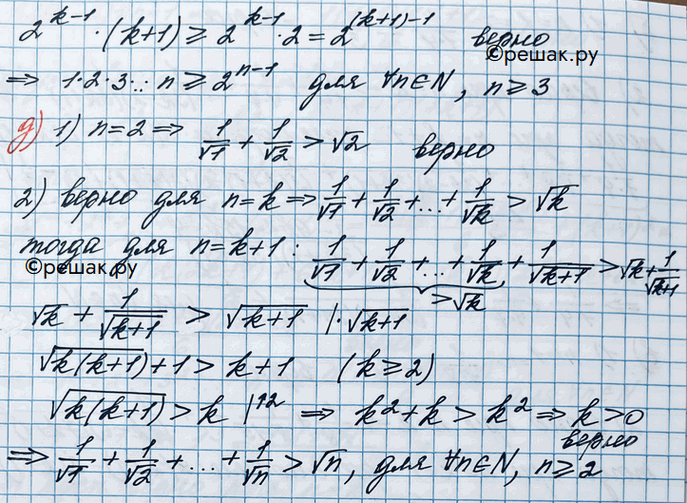 2^{k-1} · (k+1) ≥ 2^{k-1} · 2 = 2^{(k+1)-1} верно
©решак.ру
⇒ 1·2·3·...·n ≥ 2^{n-1} для ∀n∈N, n≥3
д) 1) n=2 ⇒ 1/√1 + 1/√2 > √2 верно
2) верно для n=k ⇒ 1/√1 + 1/√2 + ... + 1/√k > √k
тогда для n=k+1: 1/√1 + 1/√2 + ... + 1/√k + 1/√(k+1) > √k + 1/√(k+1)
©решак.ру
>√k
√k + 1/√(k+1) > √(k+1) |·√(k+1)
√(k(k+1)) + 1 > k+1 (k≥2)
√(k(k+1)) > k |↑2 ⇒ k²+k > k² ⇒ k>0
верно
⇒ 1/√1 + 1/√2 + ... + 1/√n > √n, для ∀n∈N, n≥2